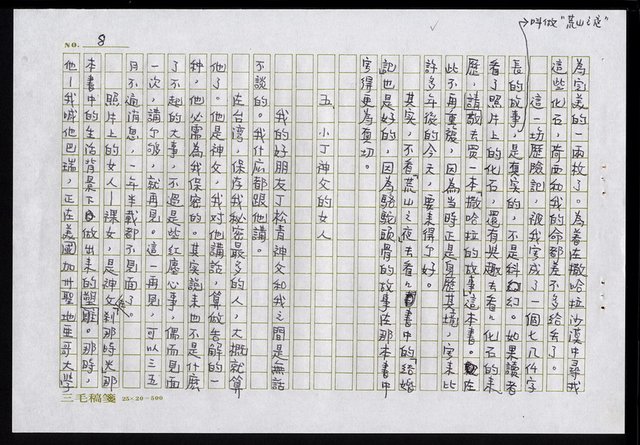 NO. 8
叫做"荒山之夜"
為完美的一兩枚了。為着在撒哈拉沙漠中尋找
這些化石，荷西和我的命都差不多給去了。
這一場歷險記，被我寫成了一個七八千字
長的故事，是真實的，不是科幻。如果讀者
看了照片上的化石，還有興趣去看化石的來
歷，請敬去買一本"撒哈拉的故事"這本書。在
此不再重複，因為當時正是身歷其境，寫來比
許多年後的今天，要來得介好。
其實，不看"荒山之夜"去看書中的"結婚
記"也是好的，因為駱駝頭骨的故事在那本書中
寫得更為真切。
五、小丁神父的女人
我的好朋友丁松青神父和我之間是無話
不談的。我什麼都跟他講。
在台灣，保存我秘密最多的人，大概就算
他了。他是神父，我對他講話，算做告解的一
種，他必需為我保密的。其實說來也不是什麼
了不起的大事，不過是些紅塵心事，偶而見面
一次，講介夠，就再見。這一再見，可以三五
月不通消息，一年半載都不見面了。
照片上的女人——裸女，是神父在剎那時光那
本書中的生活背景下做出來的塑雕。那時，
他——我喊他巴瑞，正在美國加州聖地亞哥大學
三毛稿箋 25×20=500